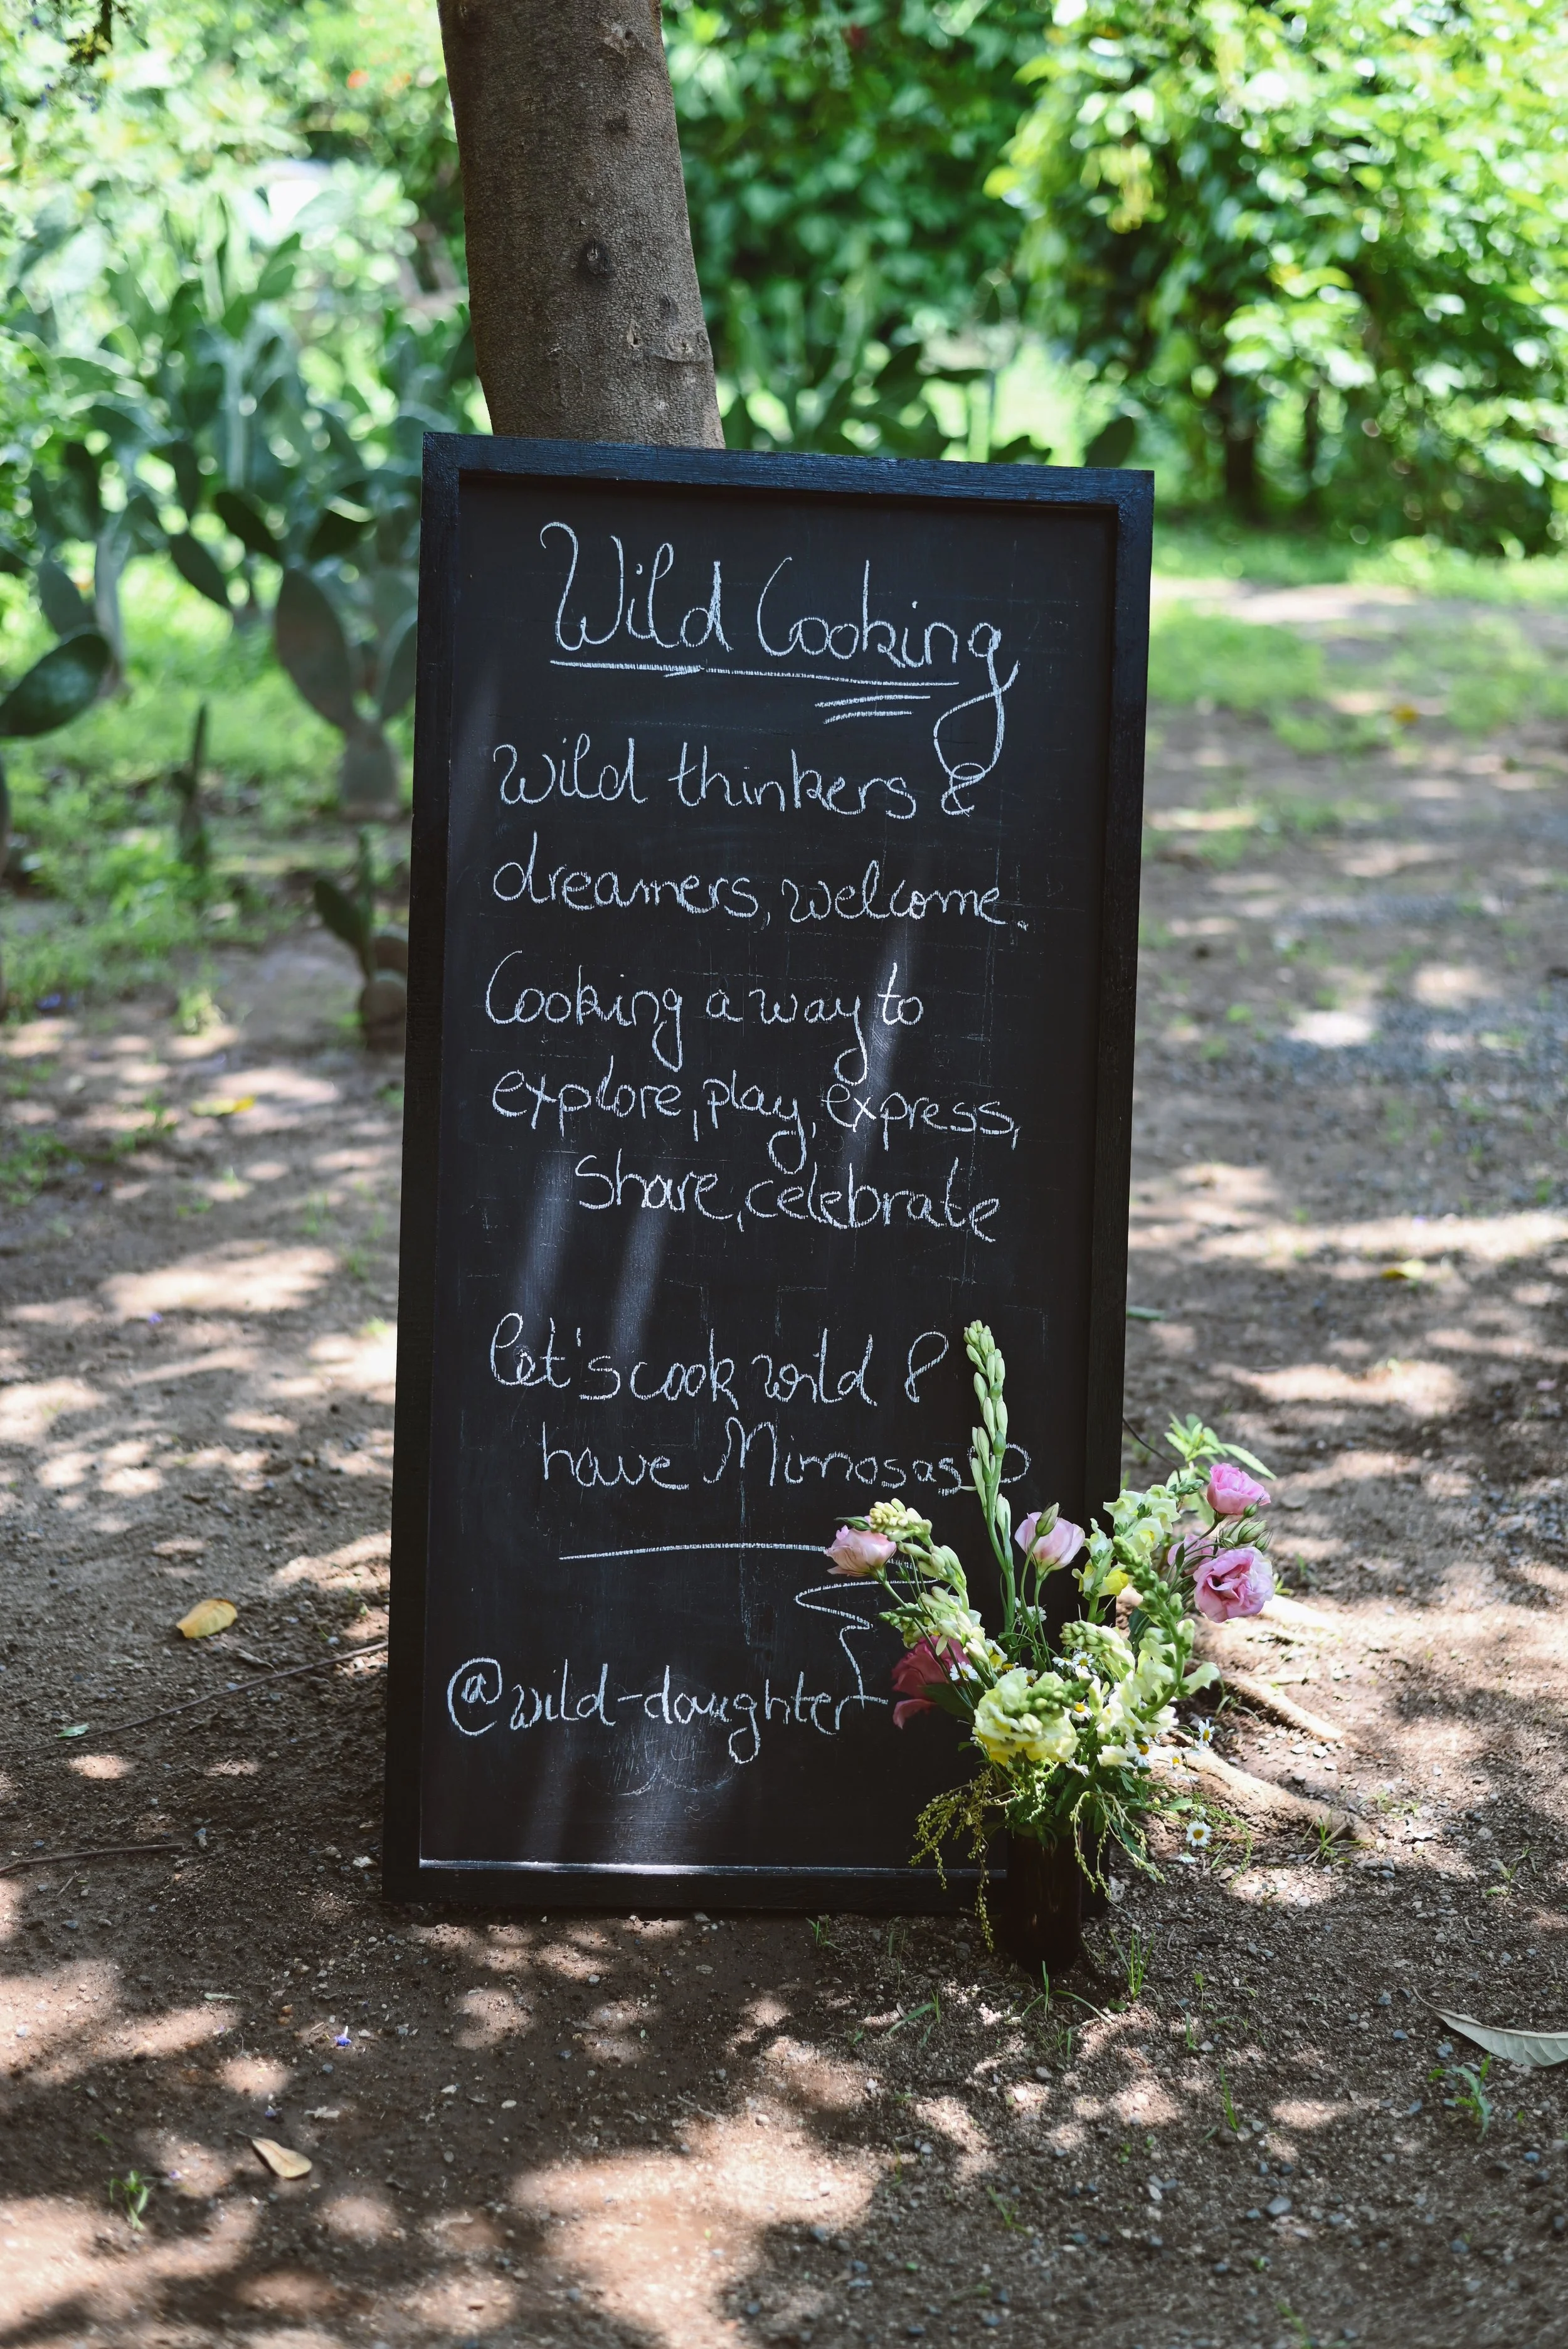 Wild Cooking
Wild thinkers &
dreamers, welcome.
Cooking a way to
explore, play, express,
Share, celebrate
let's cook wild &
have Mimosas
@wild-daughter